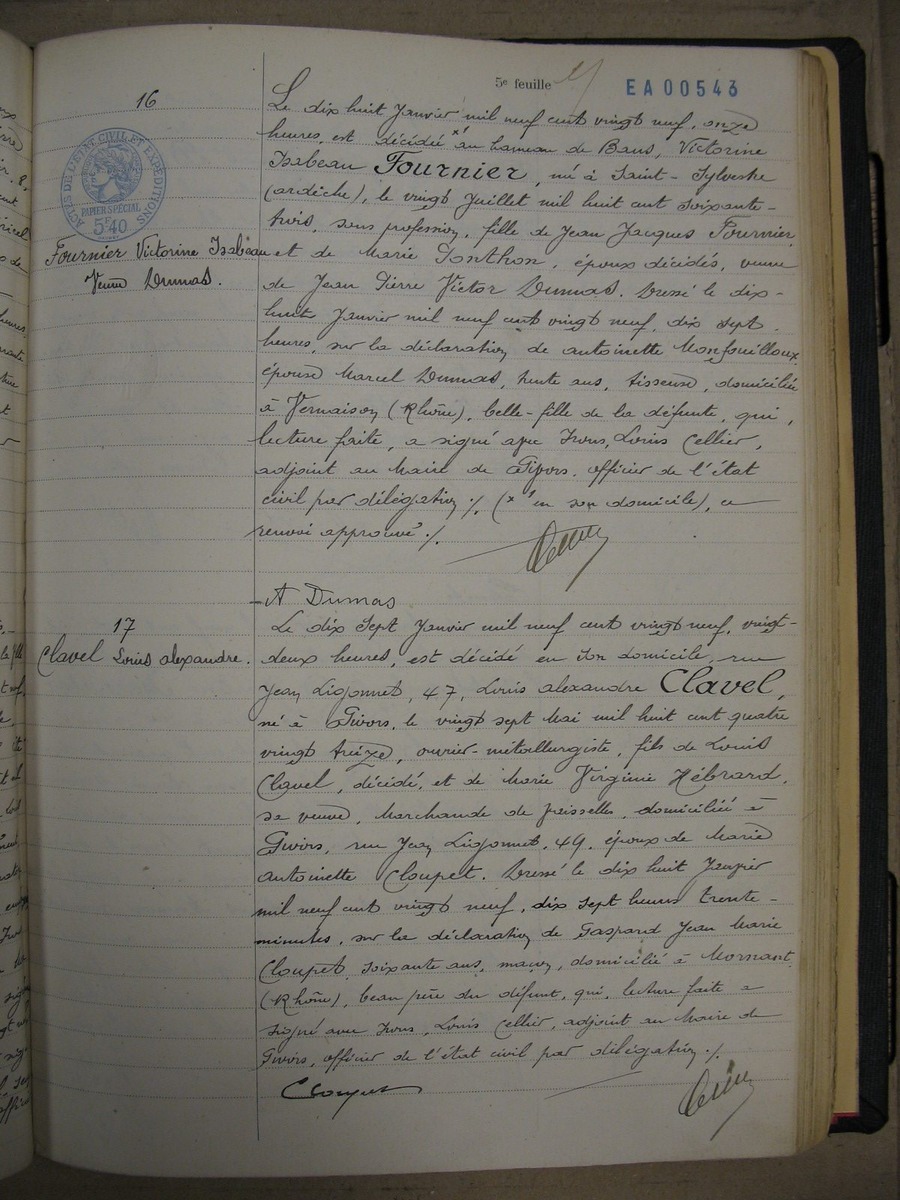 5e feuille
EA00543
16
ACTES DE L'ETAT CIVIL ET EXPEDITIONS
PAPIER SPÉCIAL
5F40
Fournier Victorine Isabeau
Veuve Dumas.
Le dix huit Janvier mil neuf cent vingt neuf, onze
heures, est décédé x1 au hameau de Bans, Victorine
Isabeau Fournier, né à Saint-Sylvestre
(ardèche), le vingt Juillet mil huit cent soixante-
trois, sans profession, fille de Jean Jacques Fournier,
et de Marie Ponthon, époux décidés, veuve
de Jean Pierre Victor Dumas. Dressé le dix-
huit Janvier mil neuf cent vingt neuf, dix sept
heures, sur la déclaration de antoinette Monfouilloux
épouse Marcel Dumas, trente ans, tisseuse, domiciliée
à Vernaison (Rhône), belle-fille de la défunte, qui,
lecture faite, a signé avec Nous, Louis Cellier,
adjoint au Maire de Givors, officier de l'état
civil par délégation ./. (x1 en son domicile), ce
renvoi approuvé ./.
A Dumas
17
Clavel Louis alexandre.
Le dix sept Janvier mil neuf cent vingt neuf, vingt-
deux heures, est décidé en son domicile, rue
Jean Ligonnet, 47, Louis alexandre Clavel,
né à Givors, le vingt sept Mai mil huit cent quatre
vingt treize, ouvrier-métallurgiste, fils de Louis
Clavel, décidé, et de Marie Virginie Hébrard,
sa veuve, Marchande de Vaisselles, domiciliée à
Givors, rue Jean Ligonnet, 49, époux de Marie
antoinette Cloupet. Dressé le dix huit Janvier
mil neuf cent vingt neuf, dix sept heures trente-
minutes, sur la déclaration de Gaspard Jean Marie
Cloupet, soixante ans, maçon, domicilié à Mornant
(Rhône), beau père du défunt, qui, lecture faite a
signé avec Nous, Louis Cellier, adjoint au Maire de
Givors, officier de l'état civil par délégation ./.
Cloupet